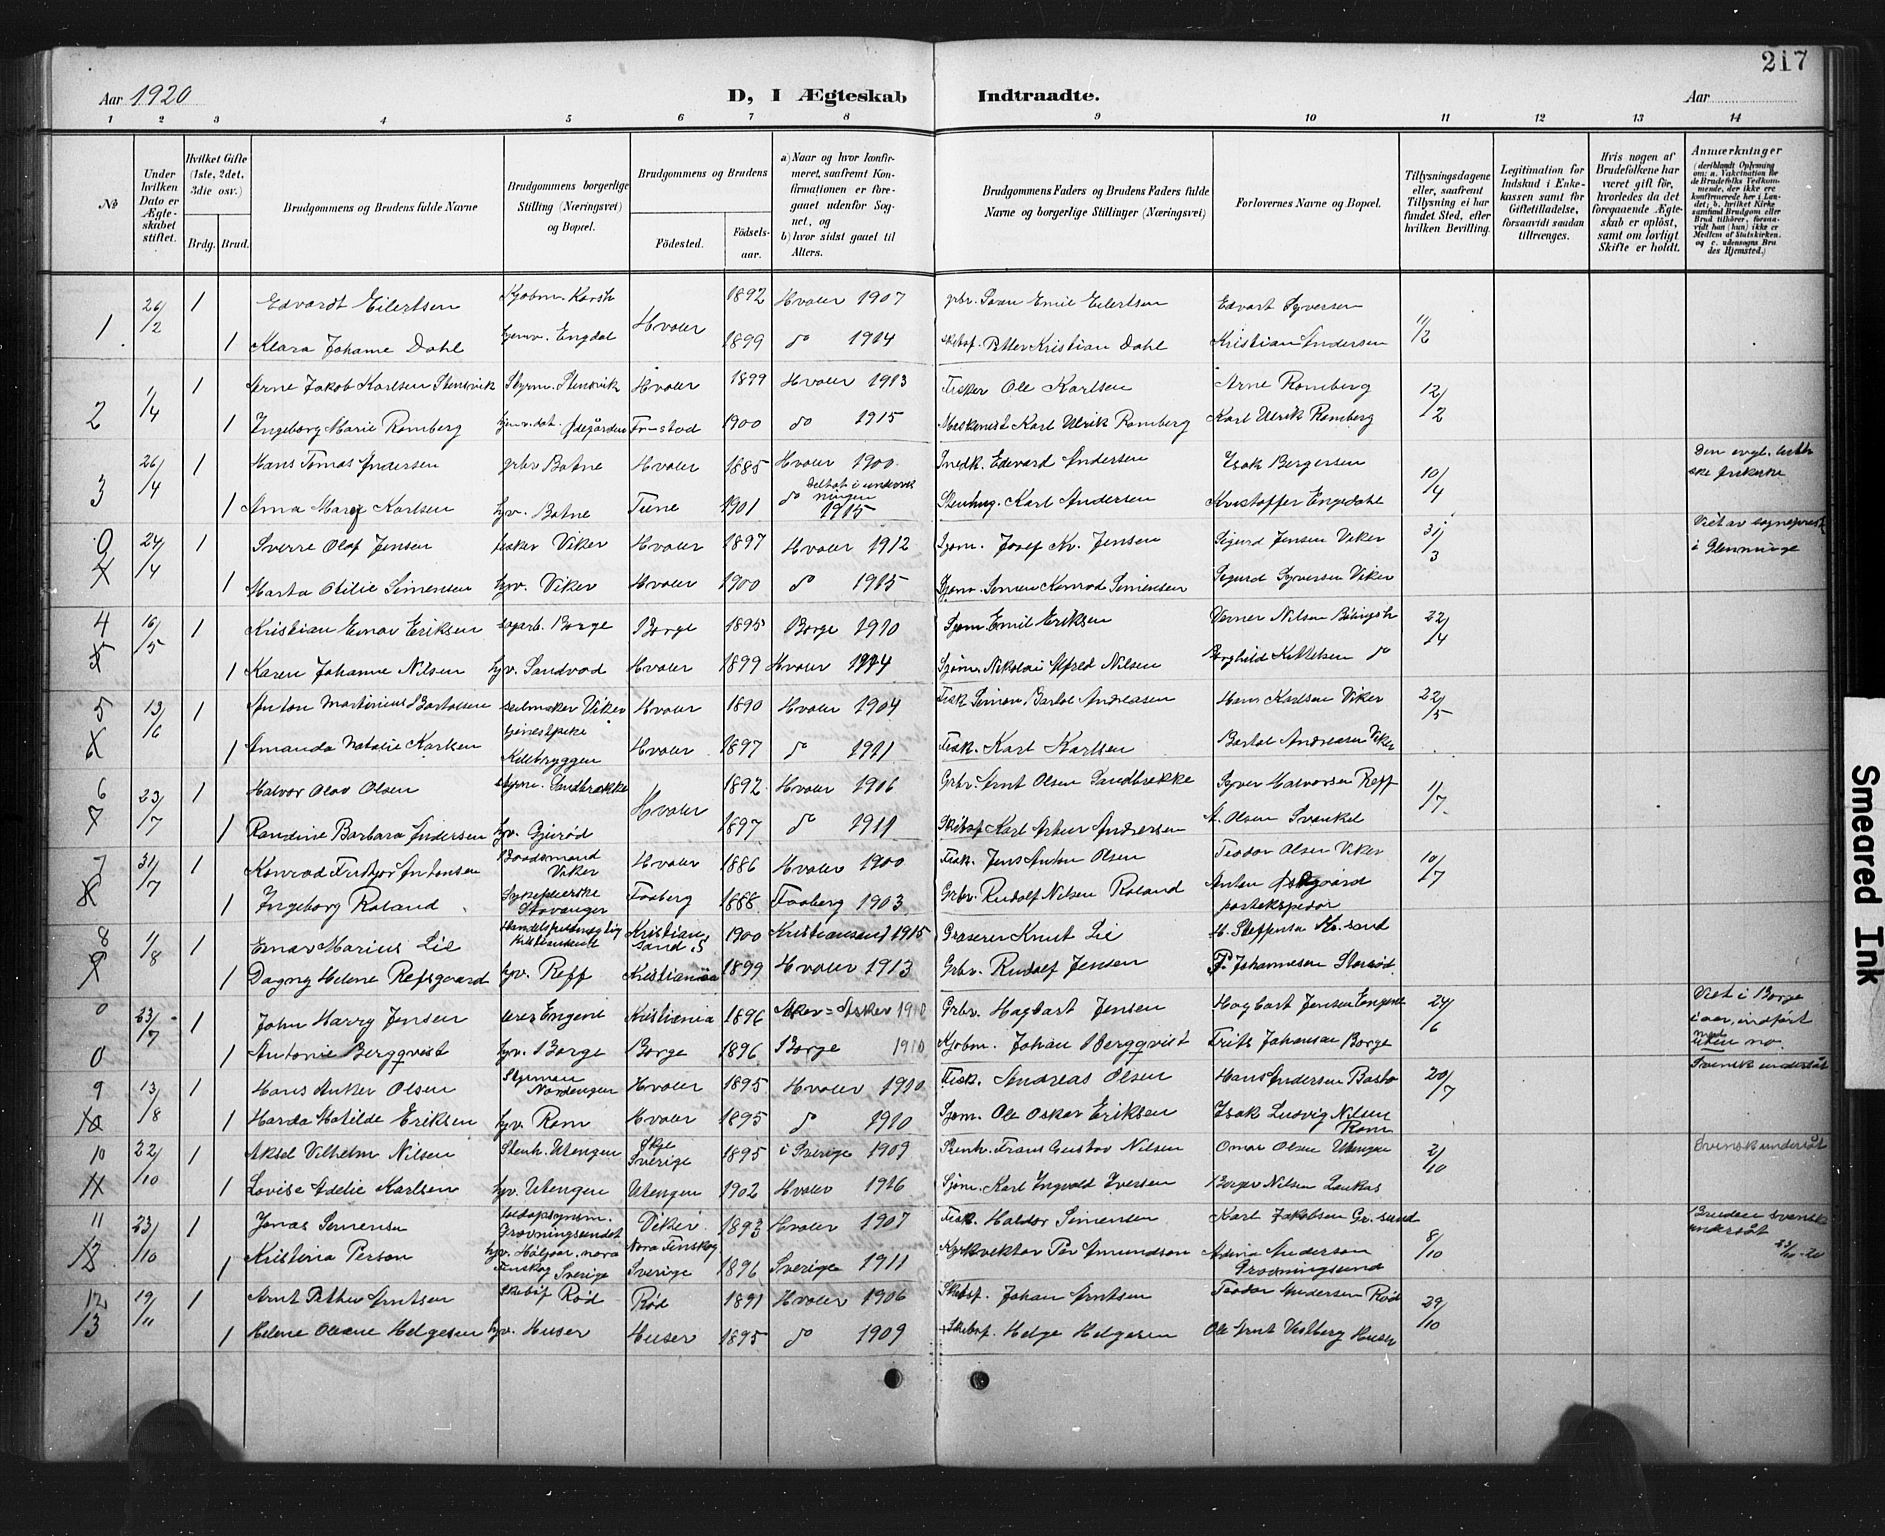 217
Aar 1920
D, I Ægteskab Indtraadte.
Aar
1 2 3 4 5 6 7 8 9 10 11 12 13 14
No
Under hvilken Dato er Ægteskabet stiftet.
Hvilket Gifte (1ste, 2det, 3die osv.)
Brdg. Brud.
Brudgommens og Brudens fulde Navne
Brudgommens borgerlige Stilling (Næringsvei) og Bopæl.
Brudgommens og Brudens
Fødested.
Fødselsaar.
a) Naar og hvor konfirmeret, saafremt Konfirmationen er foregaaet udenfor Sognet, og
b) hvor sidst gaaet til Alters.
Brudgommens Faders og Brudens Faders fulde Navne og borgerlige Stillinger (Næringsvei)
Forlovernes Navne og Bopæl.
Tillysningsdagene eller, saafremt Tillysning ei har fundet Sted, efter hvilken Bevilling.
Legitimation for Indskud i Enkekassen samt for Giftetilladelse, forsaavidt saadan tiltrænges.
Hvis nogen af Brudefolkene har været gift før, hvorledes da det foregaaende Ægteskab er opløst, samt om lovligt Skifte er holdt.
Anmærkninger (deriblandt Oplysning om: a. Vakcination for de Brudefolks Vedkommende, der ikke ere konfirmerede her i Landet; b. hvilket Kirkesamfund Brudgom eller Brud tilhører, forsaavidt han (hun) ikke er Medlem af Statskirken. og c. udensogns Brudes Hjemsted.)
1 26/2 1 Edvardt Eilertsen Hvaler 1892 Hvaler 1907 grbr. Emil Eilertsen Edvart Syversen 11/2
1 Klara Johanne Dahl Engdal 1899 do 1914 Petter Kristian Dahl Kristian Andersen
2 1/4 1 Arne Jakob Karlsen Stensvik Styrm. Stensvik Hvaler 1899 Hvaler 1913 Fisker Ole Karlsen Arne Romberg 12/2
1 Ingeborg Marie Romberg Ødegården Fr-stad 1900 do 1915 Maskenist Karl Ulrik Romberg Karl Ulrik Romberg
3 26/4 1 Hans Tomas Andersen grbr. Botne Hvaler 1885 Hvaler 1900 Snedk. Edvard Andersen Isak Bergersen 10/4 Den evgl. luth
1 Anna Karlsen hjv. Botne Tune 1901 do 1915 Stenhug. Karl Andersen Kristoffer Engedahl
0 24/4 1 Sverre Olaf Jensen fisker Viker Hvaler 1897 Hvaler 1912 Sjøm. Josef Kr. Jensen Sigurd Jensen Viker 31/3
i Glemminge
1 Marta Otilie Simensen hjv. Viker Hvaler 1900 do 1915 Simen Konrad Simensen Sigurd Syversen Viker
4 16/5 1 Kristian Einar Eriksen Borge Borge 1895 Borge 1910 Sjøm. Emil Eriksen Verner Nilsen 22/4
1 Karen Johanne Nilsen hjv. Sandvod Hvaler 1899 Hvaler 1914 Sjøm. Nikolai Alfred Nilsen Borghild Kittelsen do
5 13/6 1 Anton Martinius Bartolsen seilmaker Viker Hvaler 1890 Hvaler 1904 Fisk. Simon Bartol Andreasen Hans Karlsen Viker 22/5
1 Amanda Natalie Karlsen Hvaler 1897 do 1911 Fisk. Karl Karlsen Bartol Andreasen Viker
6 23/7 1 Halvor Olav Olsen Styrm. Sandbrække Hvaler 1892 Hvaler 1906 Grbr. Arnt Olsen Sandbrække Syver Halvorsen Reff 1/7
1 Randine Barbara Andersen hjv. Gjurød 1897 do 1911 Karl Artur Andersen A. Olsen
7 31/7 1 Konrad Fridtjov Antonsen Baadsmand Viker Hvaler 1886 Hvaler 1900 Fisk. Jens Anton Olsen Teodor Olsen Viker 10/7
1 Ingeborg Roland Sykepleierske Stavanger Faaberg 1888 Faaberg 1903 Grbr. Rudolf Nilsen Roland Anton
8 11/8 1 Einar Marius Lie Kristiansand S 1900 Kristiansand 1915 Knut Lie M. Steffensen
1 Dagny Helene Refsgaard hjv. Reff Kristiania 1899 Hvaler 1913 Grbr. Rudolf Jensen P. Johannesen
0 23/7 1 John Harry Jensen Kristiania 1896 Asker 1910 Grbr. Hagbart Jensen Hagbart Jensen 24/6 Viet i Borge
i aar, indført
uten no.
0 1 Antonie Bergqvist hjv. Borge Borge 1896 Borge 1910 Johan Bergqvist Frits Johansen Borge
9 13/8 1 Hans Anker Olsen Styrman Nordengen Hvaler 1895 Hvaler 1910 Fisk. Andreas Olsen Hans Andersen 20/7 Svensk undersåt
1 Harda Matilde Eriksen hjv. Rom Hvaler 1895 do 1910 Sjøm. Ole Oskar Eriksen Isak Ludvig Nilsen Rom
10 22/10 1 Aksel Vilhelm Nilsen Stenh. Utengen Sverige 1895 i Sverige 1909 Stenh. Frans Gustav Nilsen Omar Olsen Utengen 2/10 Svensk undersåt
1 Lovise Adelie Karlsen hjv. Utengen Utengen 1902 Hvaler 1916 Sjøm. Karl Ingvald Iversen Birger Nilsen
11 23/10 1 Jonas Simensen Grovningsundet Viker 1893 Hvaler 1907 Fisk. Haldor Simensen Karl Jakobsen Gr.sund 8/10 Bruden svensk
undersåt
1 Kristina Person Finskog Sverige Nora Finskog Sverige 1896 Sverige 1911 Per Amundson Andersson Grovningsund
12 19/11 1 Arnt Petter Arntsen Rød Rød 1891 Hvaler 1906 Johan Arntsen Teodor Andersen Rød 29/10
1 Helene Oleane Helgesen hjv. Huser Huser 1895 do 1909 Helge Helgesen Ole Arnt Vestberg Huser
Smeared Ink